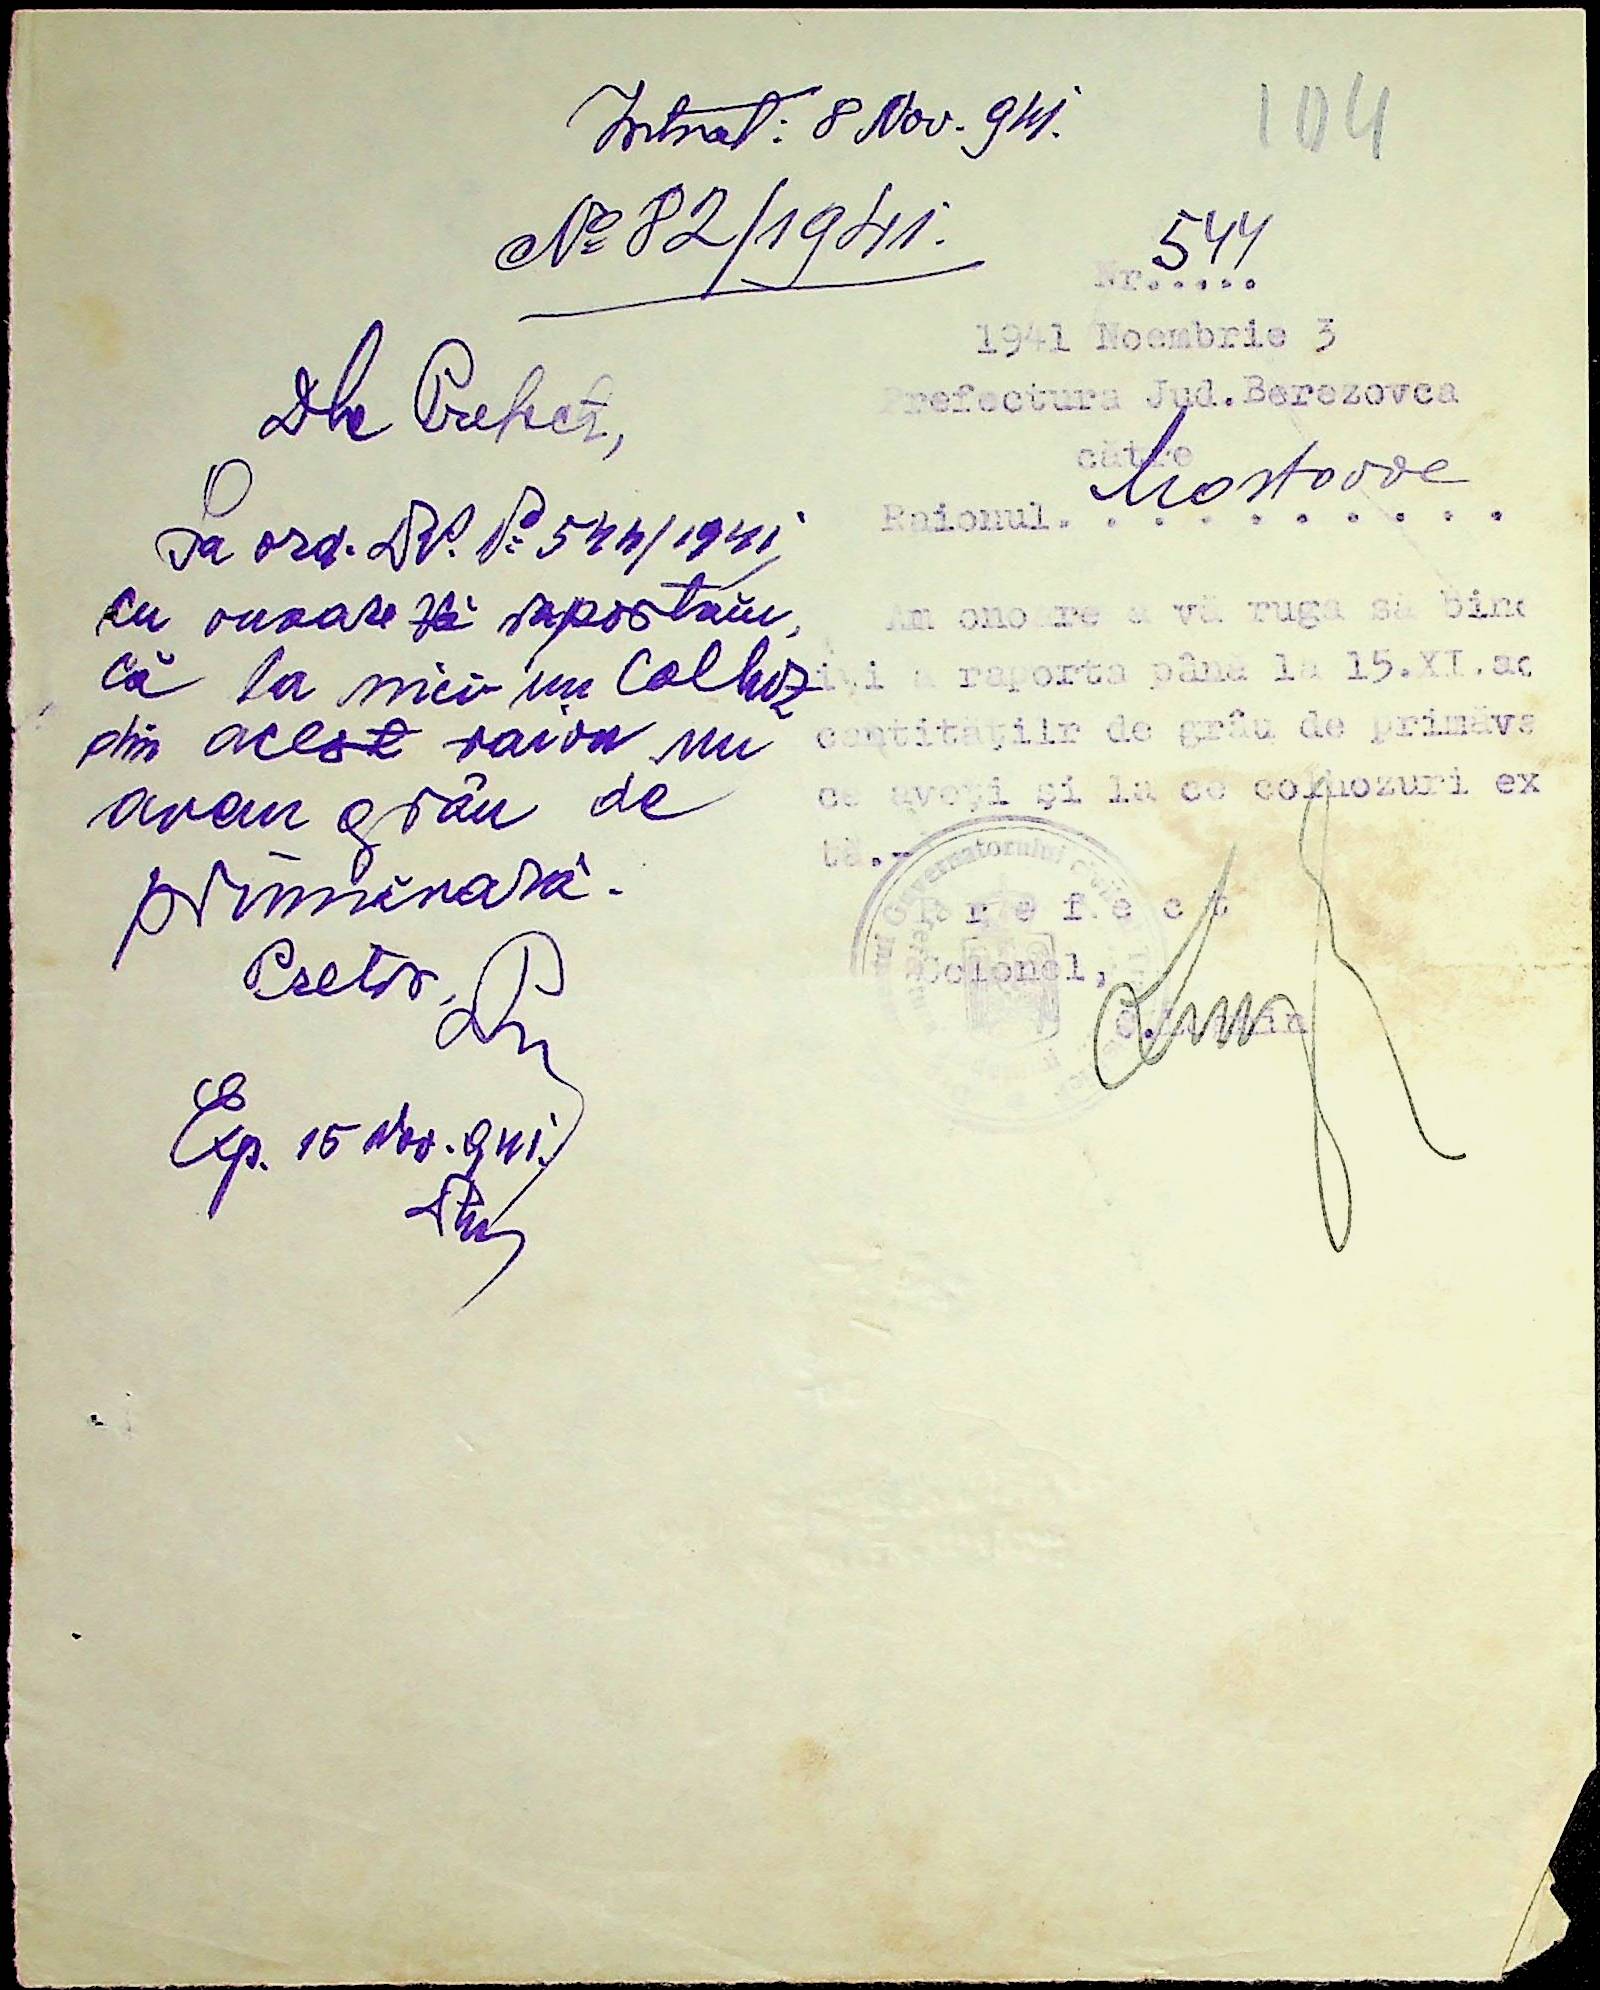 104
Intrat: 8 Nov. 941.
№ 82/1941.
544
Nr.....
1941 Noembrie 3
Prefectura Jud.Berezovca
către
Raionul. Mostovoe
Am onoare a vă ruga să bine
iți a raporta până la 15.XI.ac
cantitățiilr de grâu de primăva
ce aveți și la ce colhozuri ex
tă.-
P r e f e c t
Colonel,
Dle Prefect,
La ord. Dv. № 544/1941
cu onoare vă raportăm,
că la nici un Colhoz
din acest raion nu
avem grâu de
primăvară.
Pretor,
Exp. 15 Nov. 941.